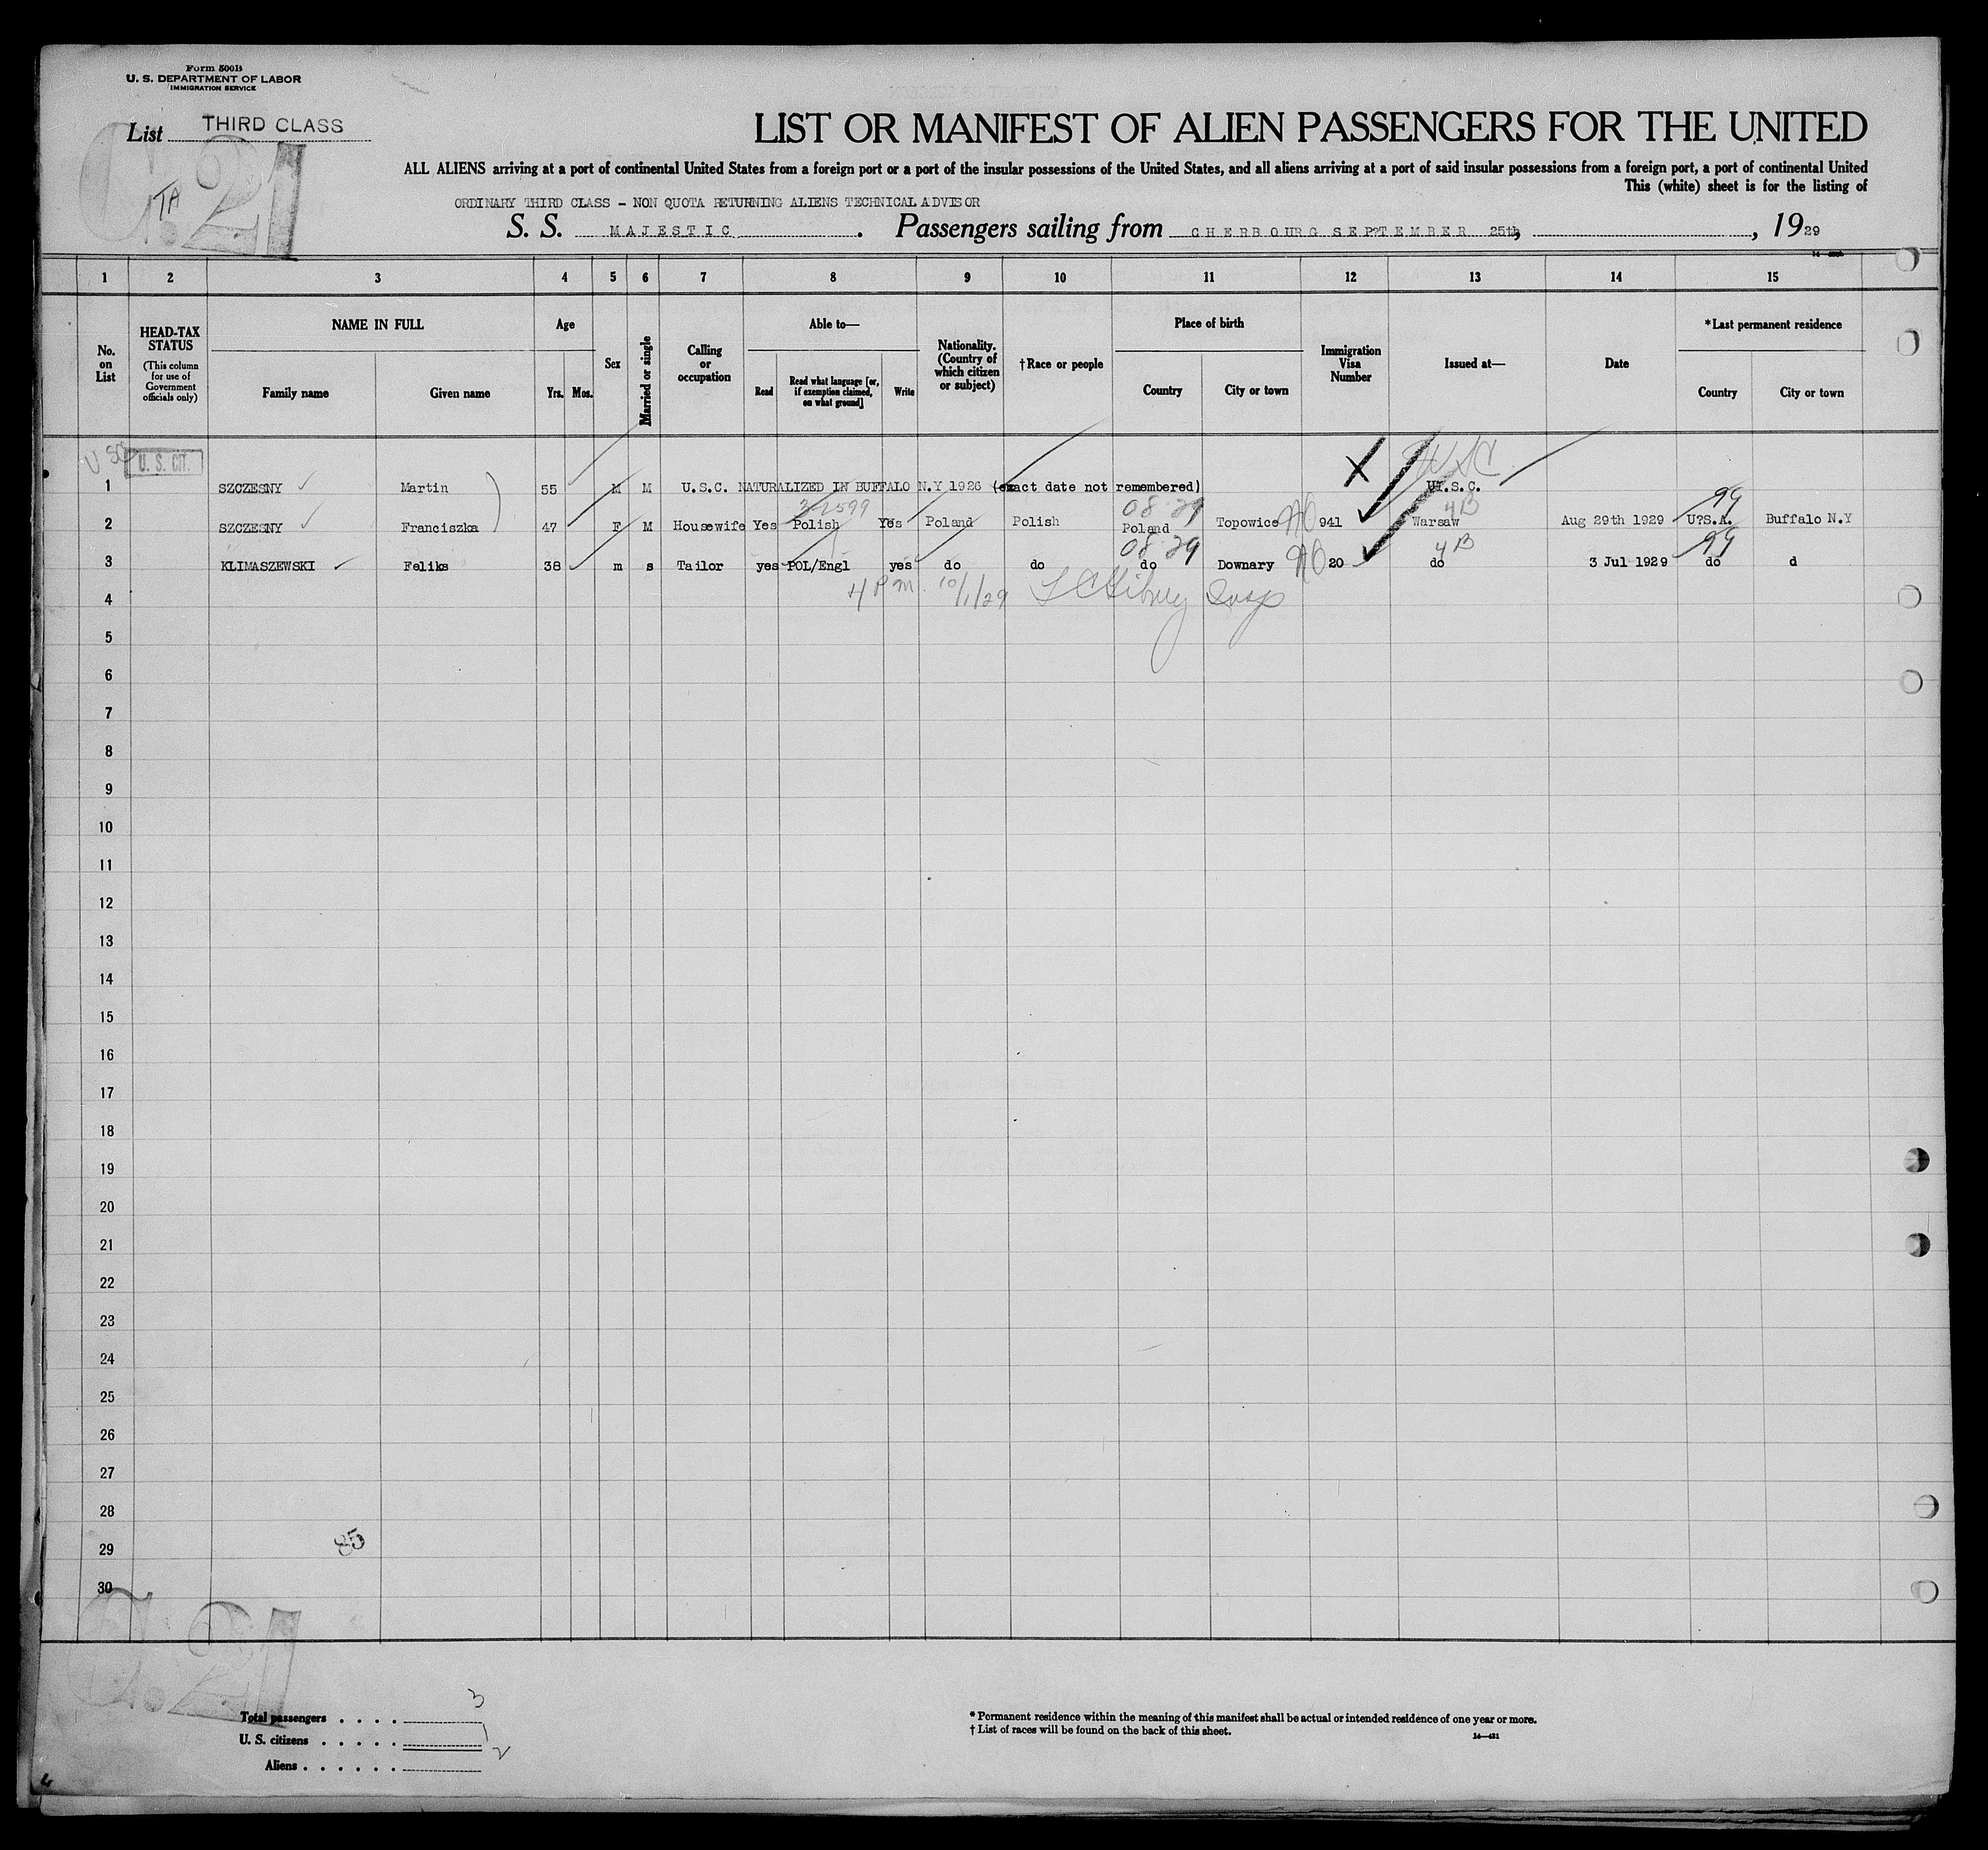 Form 500B
U. S. DEPARTMENT OF LABOR
IMMIGRATION SERVICE
List THIRD CLASS
C. 21
TA
LIST OR MANIFEST OF ALIEN PASSENGERS FOR THE UNITED
ALL ALIENS arriving at a port of continental United States from a foreign port or a port of the insular possessions of the United States, and all aliens arriving at a port of said insular possessions from a foreign port, a port of continental United
This (white) sheet is for the listing of
ORDINARY THIRD CLASS - NON QUOTA RETURNING ALIENS TECHNICAL ADVISOR
S. S. MAJESTIC. Passengers sailing from CHERBOURG SEP?TEMBER 25th, , 1929
1 2 3 4 5 6 7 8 9 10 11 12 13 14 15
No. on List
HEAD-TAX STATUS
(This column for use of Government officials only)
NAME IN FULL
Family name
Given name
Age
Yrs. Mos.
Sex
Married or single
Calling or occupation
Able to—
Read
Read what language [or, if exemption claimed, on what ground]
Write
Nationality. (Country of which citizen or subject)
†Race or people
Place of birth
Country
City or town
Immigration Visa Number
Issued at—
Date
*Last permanent residence
Country
City or town
U. S. CIT.
1 SZCZESNY Martin 55 M M U.S.C. NATURALIZED IN BUFFALO N.Y 1926 (exact date not remembered) X U.S.C.
3-2599 08 29 4B 99
2 SZCZESNY Franciszka 47 F M Housewife Yes Polish Yes Poland Polish Poland Topowice 941 Warsaw Aug 29th 1929 U?S.A. Buffalo N.Y
08 29 4B 99
3 KLIMASZEWSKI Feliks 38 m s Tailor yes POL/Engl yes do do do Downary 20 do 3 Jul 1929 do d
4 4 P.m. 10/1/29 Insp
5
6
7
8
9
10
11
12
13
14
15
16
17
18
19
20
21
22
23
24
25
26
27
28
29
85
30
C. 21
Total passengers . . . . 3
U. S. citizens . . . . . 1
Aliens . . . . . . 2
* Permanent residence within the meaning of this manifest shall be actual or intended residence of one year or more.
† List of races will be found on the back of this sheet.
14—421